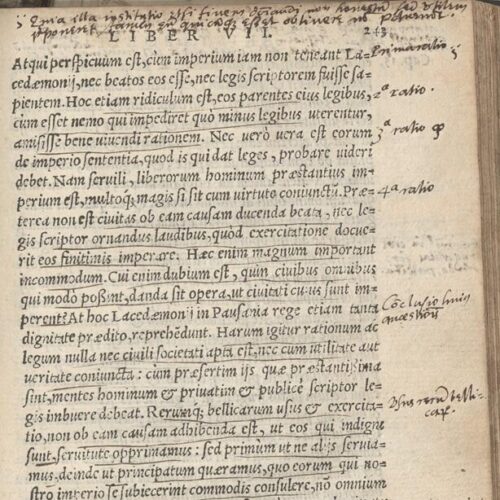 LIBER VII. 243
Atqui perspicuum est, cùm imperium iam non teneant La-
cedæmonij, nec beatos eos esse, nec legis scriptorem fuisse sa-
pientem. Hoc etiam ridiculum est, eos parentes eius legibus,
cùm esset nemo qui impediret quo minus legibus uterentur,
amisisse bene uiuendi rationem. Nec uerò uera est eorum
de imperio sententia, quod is qui dat leges, probare uideri
debet. Nam seruili, liberorum hominum præstantius im-
perium est, multoq; magis si sit cum uirtute coniunctũ. Præ-
terea non est ciuitas ob eam causam ducenda beata, nec le-
gis scriptor ornandus laudibus, quòd exercitatione docue-
rit eos finitimis imperare. Hæc enim magnum important
incommodum. Cui enim dubium est, quin ciuibus omnibus
qui modò possint, danda sit opera, ut ciuitati cuius sunt im-
perent? At hoc Lacedæmonij in Pausania rege etiam tanta
dignitate prædito, reprehẽdunt. Harum igitur rationum ac
legum nulla nec ciuili societati apta est, nec cum utilitate aut
ueritate coniuncta: cùm præsertim ijs quæ præstantissima
sint, mentes hominum & priuatim & publicè scriptor le-
gis imbuere debeat. Rerumq; bellicarum usus & exercita-
tio, non ob eam causam adhibenda est, ut eos qui indigni
sunt, seruitute opprimamus: sed primùm ut ne alijs seruia-
mus, deinde ut principatum quæramus, quo eorum qui no-
stro imperio se subiecerint commodis consulere, nō omnium
prima ratio
2ª ratio.
3ª ratio
4ª ratio
Cōclusio huius
quæstiōis
Usus rerū belli-